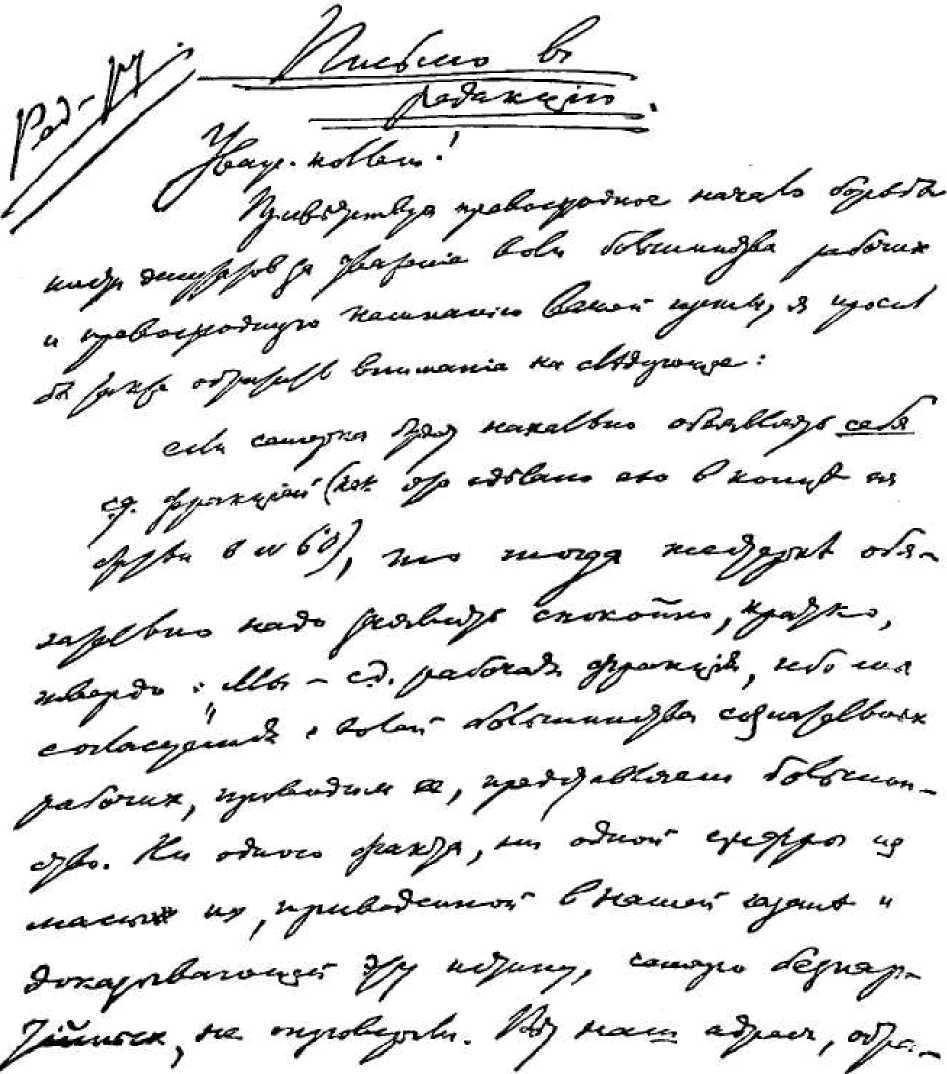 Ред-ру
Письмо в
редакцію.
Уваж. коллеги!
Приветствуя превосходное начало борьбы
шести депутатов за уваженіе воли большинства рабочих
и превосходную кампанію вашей газеты, я просил
бы также обратить вниманіе на следующее:
семерка будет нахально объявлять себя
с.д. фракціей (как это сделано ею в конце ея
статьи в № 60), то тогда шестерке обя-
зательно надо заявить спокойно, кратко,
твердо: „Мы – с.д. рабочая фракція, ибо мы
согласуемся с волей большинства сознательных
рабочих, проводим ее, представляем большин-
ство. Ни одного факта, ни одной цифры из
массы их, приводимой в нашей газете и
доказывающей эту истину, семеро безпар-
тійных, не опровергли. Вот наш адрес, обра-